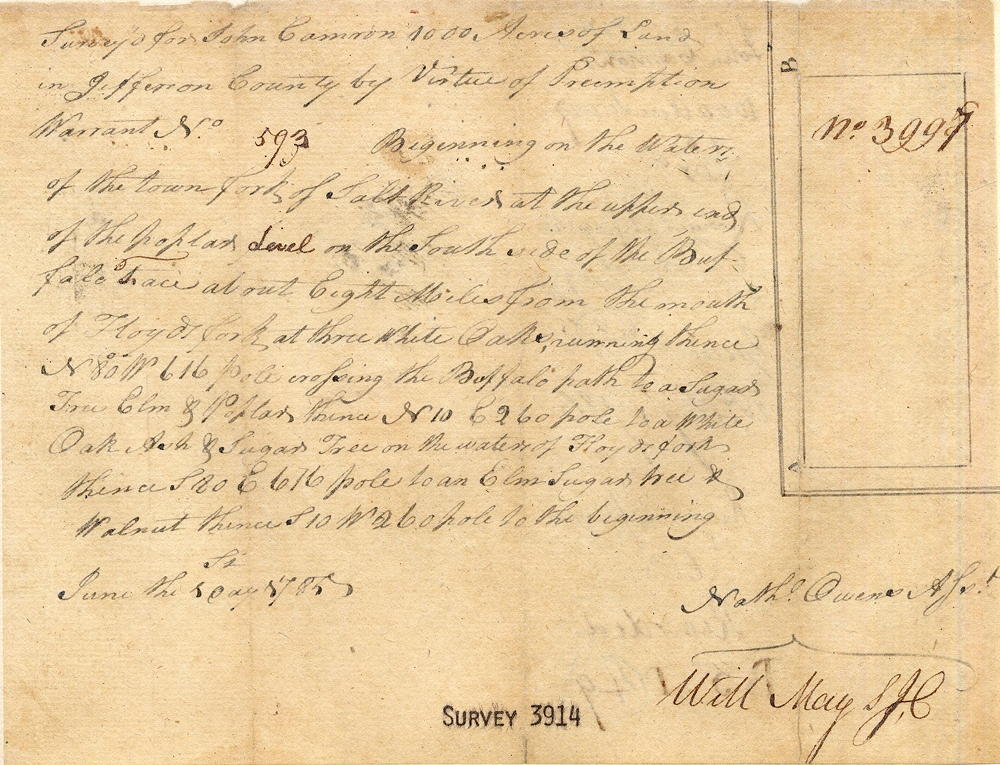 Survey'd for John Camron 1000 Acres of Land
in Jefferson County by Virtue of Preemption
Warrant No. 593 Beginning on the Waters
of the town fork of Salt River at the upper end
of the poplar Level on the South side of the Buf-
falo Trace about Eight Miles from the mouth
of Floyds fork at three White Oaks, running thence
N 80 W 616 pole crossing the Buffalo path to a Sugar
Tree Elm & Poplar thence N 10 E 260 pole to a White
Oak Ash & Sugar Tree on the waters of Floyds fork
thence S 80 E 616 pole to an Elm Sugar tree &
Walnut thence S 10 W 260 pole to the beginning
June the 1st Day 1785
Nathl. Owens Asst.
Will May S J C
No 3997
B
A
SURVEY 3914